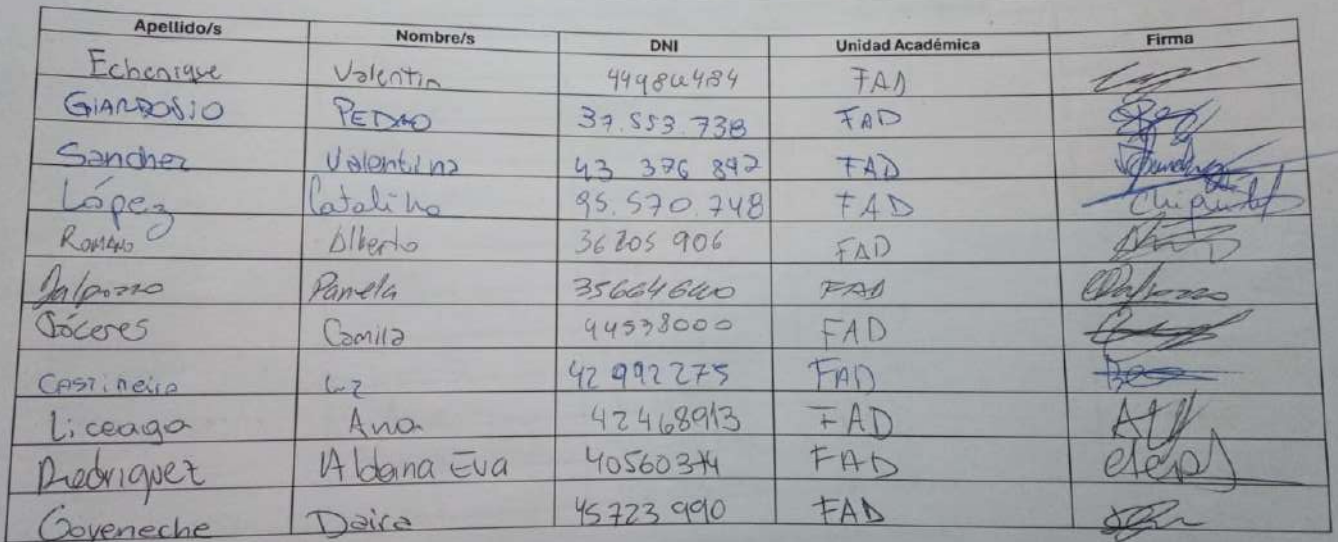 Apellido/s Nombre/s DNI Unidad Académica Firma
Echenique Valentin FAD
GIARROSIO PEDRO 37.553.738 FAD
Sanchez Valentina 43 376 842 FAD
López Catalina 95.570.748 FAD
ROMANO Alberto 36205906 FAD
Dalpozzo Pamela 35664640 FAD Dalpozzo
Cáceres Camila 44538000 FAD
CASTiñeira 42992275 FAD
Liceaga Ana 42468913 FAD
Rodriguez Aldana Eva 40560374 FAD
Goyeneche Daira 45723990 FAD